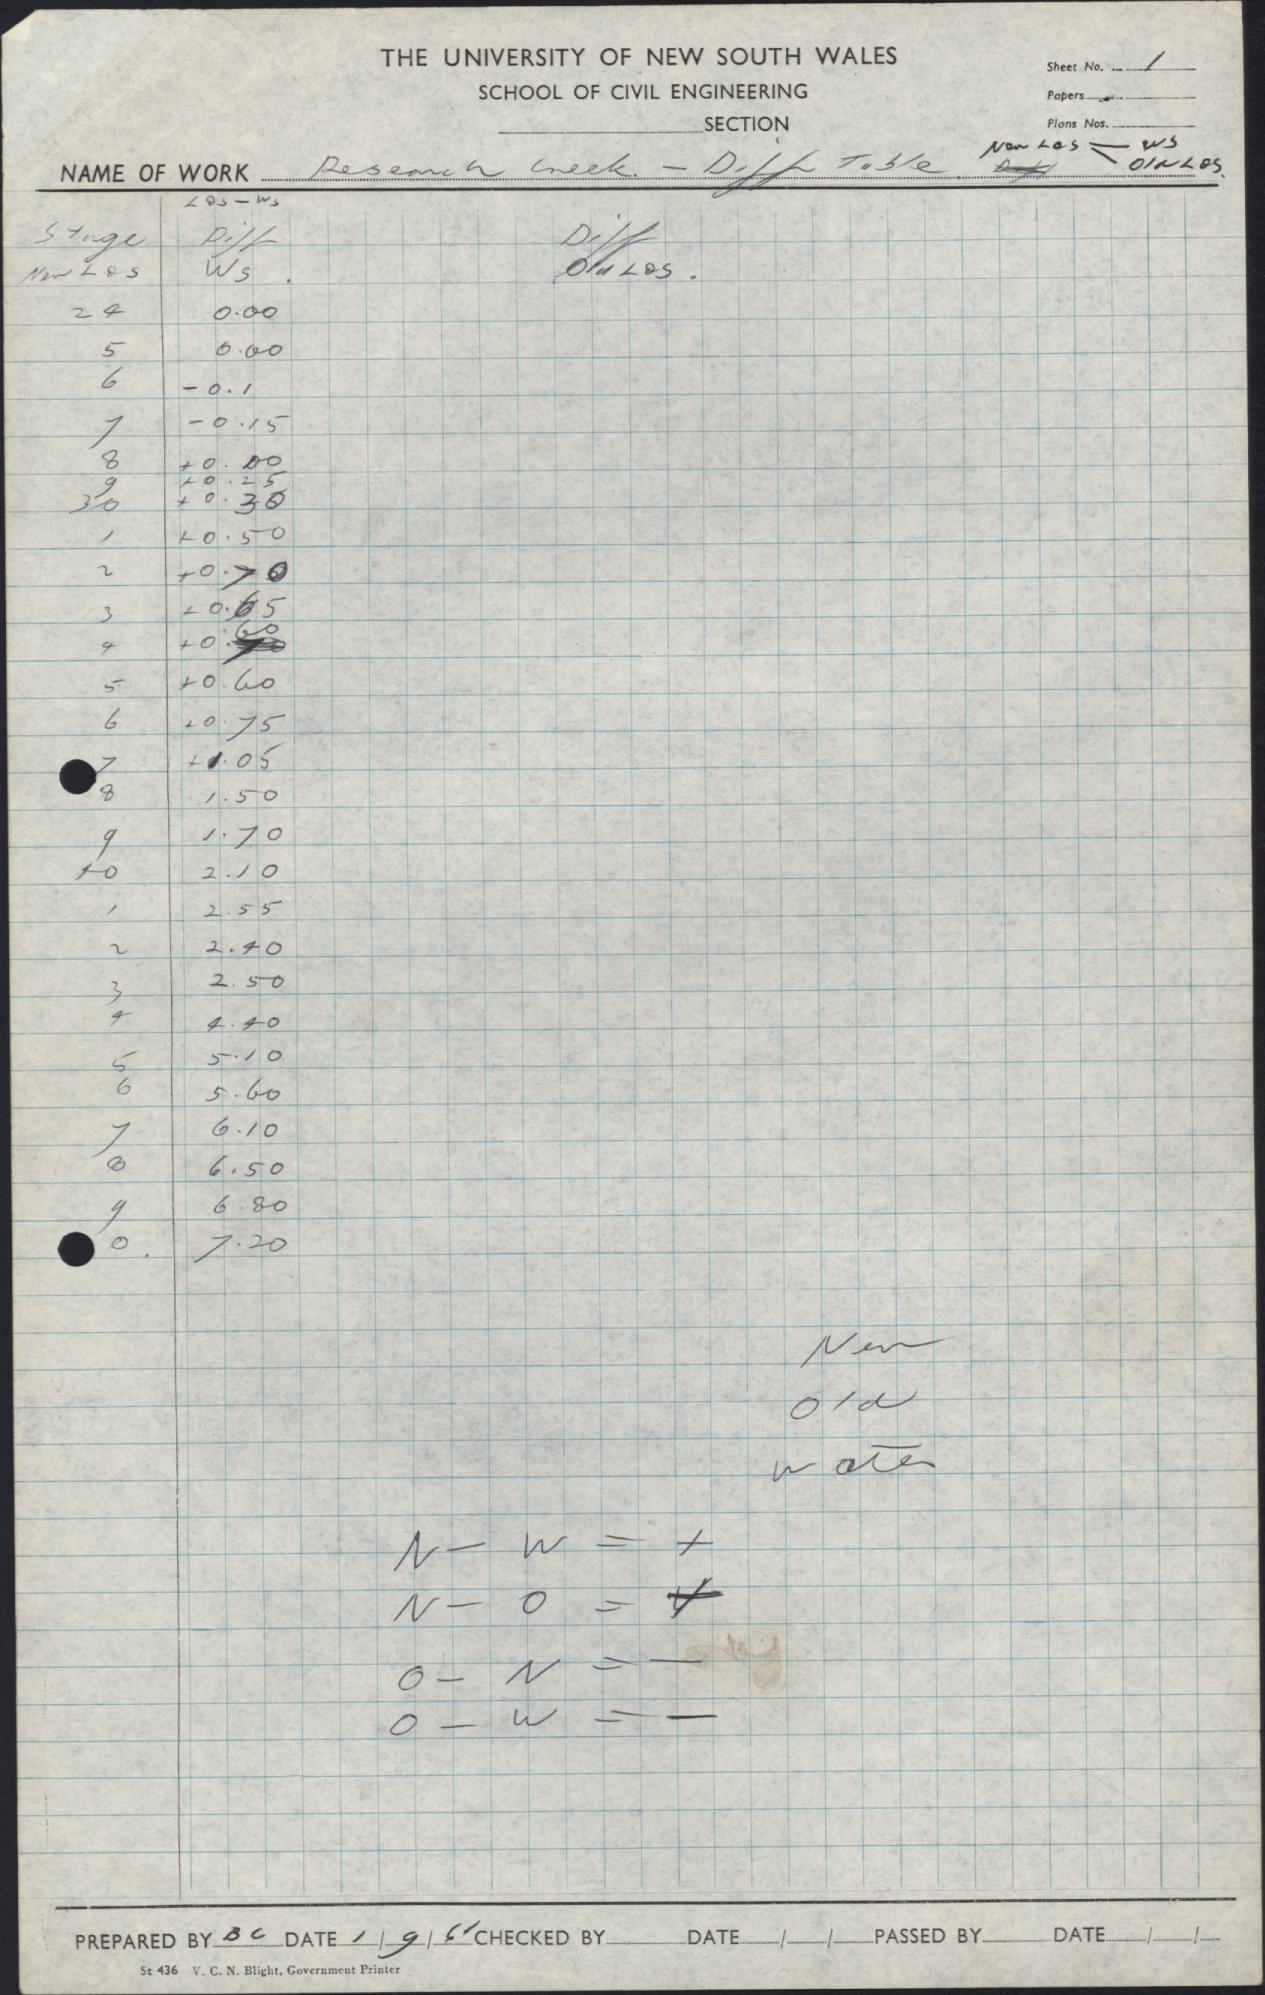 THE UNIVERSITY OF NEW SOUTH WALES
SCHOOL OF CIVIL ENGINEERING
SECTION
Sheet No. 1
Papers
Plans Nos.
NAME OF WORK Research Creek. - Diff Table. New LOS - WS
Old LOS.
LOS - WS
Stage Diff Diff
New LOS WS. Old LOS.
24 0.00
5 0.00
6 -0.1
7 -0.15
8 +0.00
9 +0.25
30 +0.30
1 +0.50
2 +0.70
3 +0.65
4 +0.60
5 +0.60
6 +0.75
7 +1.05
8 1.50
9 1.70
40 2.10
1 2.55
2 2.40
3 2.50
4 4.40
5 5.10
6 5.60
7 6.10
8 6.50
9 6.80
0. 7.20
New
Old
Water
N - W = +
N - O =
O - N = -
O - W = -
PREPARED BY BC DATE 1/9/61 CHECKED BY DATE / / PASSED BY DATE / /
St 436 V. C. N. Blight, Government Printer